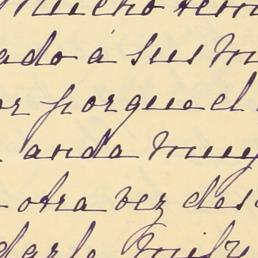 Mucho
ado á sus
or porque el
anda muy
otra vez des
darle